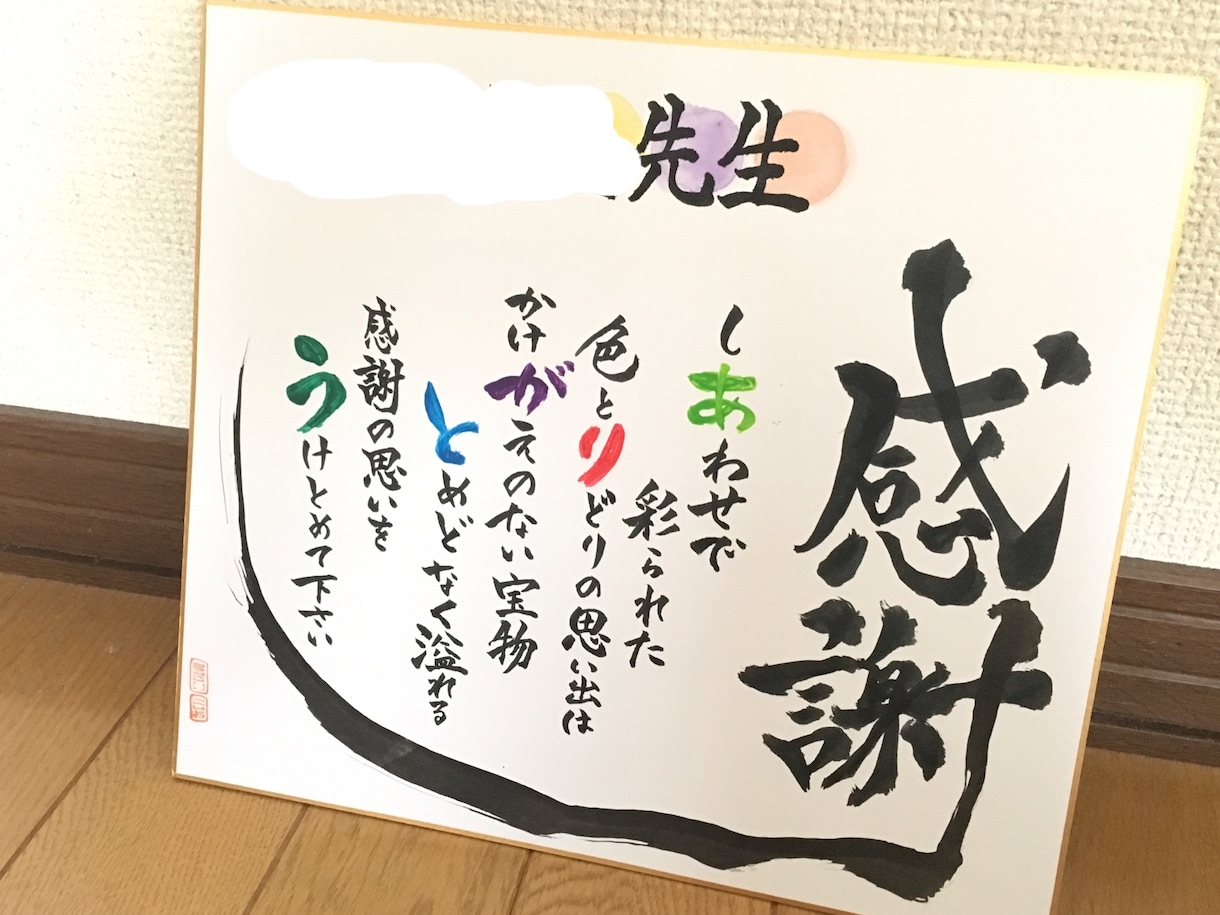 先生
感謝
しあわせで
彩られた
色とりどりの思い出は
かけがえのない宝物
とめどなく溢れる
感謝の思いを
うけとめて下さい